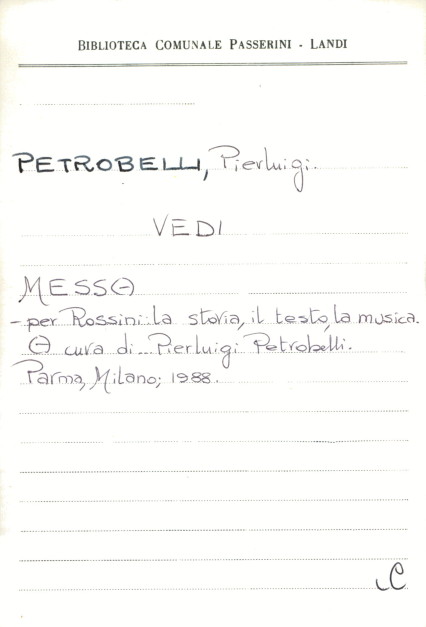 BIBLIOTECA COMUNALE PASSERINI - LANDI
PETROBELLI, Pierluigi.
VEDI
MESSA
- per Rossini: la storia, il testo, la musica.
A cura di... Pierluigi Petrobelli.
Parma, Milano; 1988.